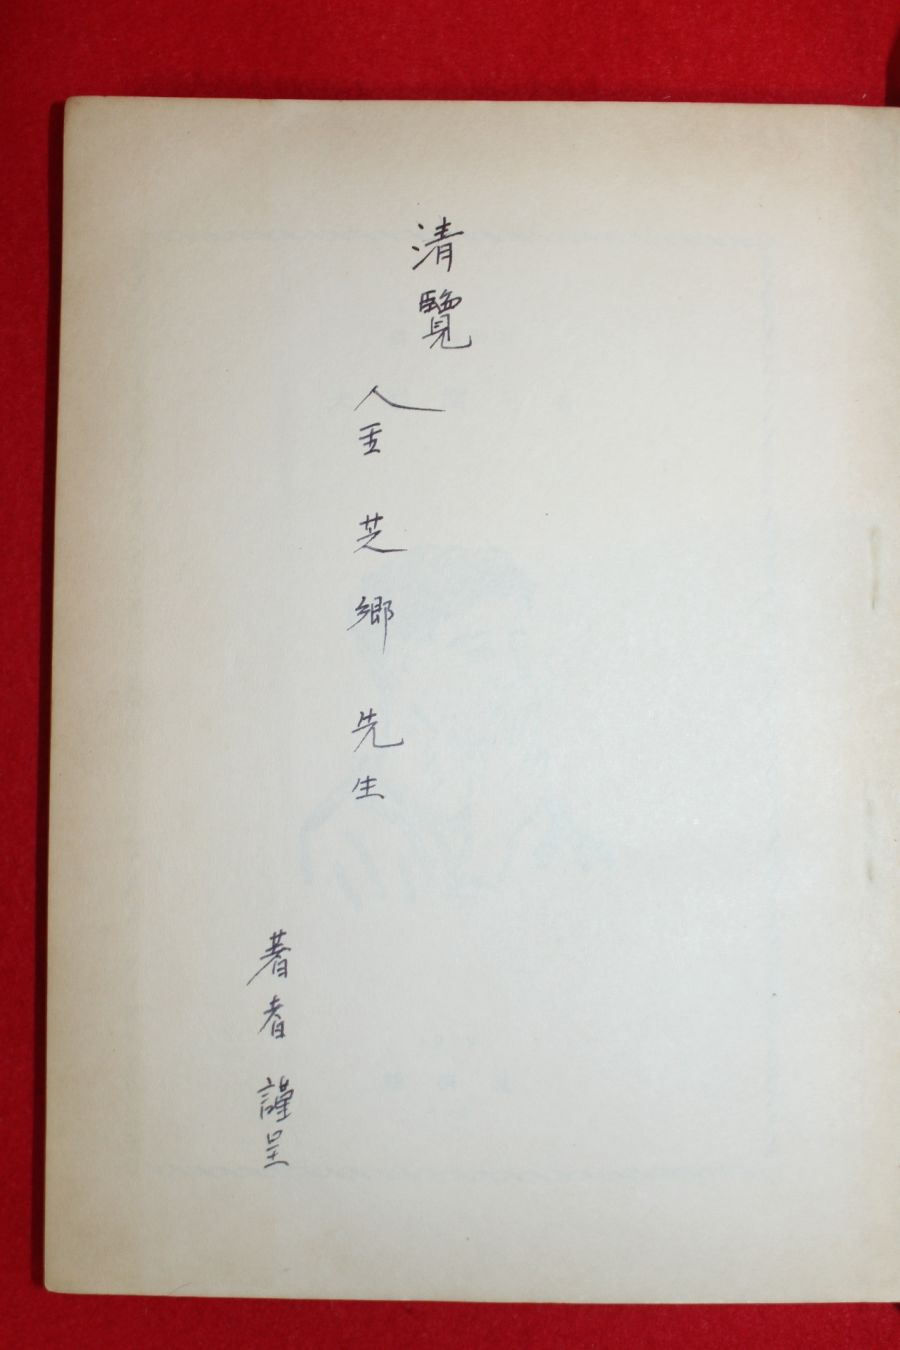 清覽
金芝鄕先生
著者 謹呈